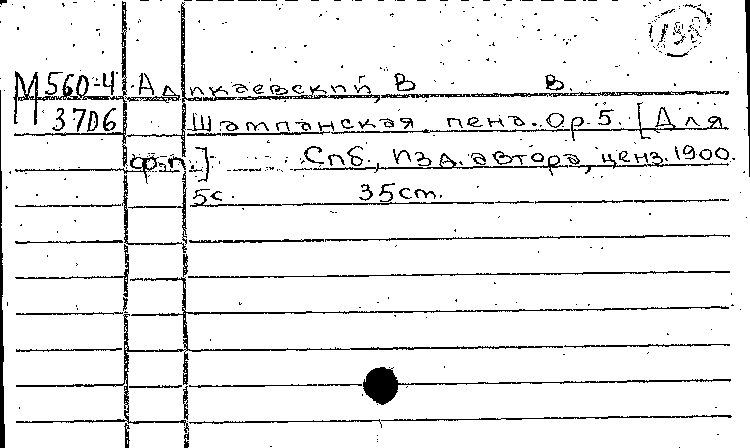 198
М 560-4 Адикаевский, В В.
3706 Шампанская пена. Op. 5. [Для
ф.-п.] Спб., изд. автора, ценз. 1900.
5с. 35cm.